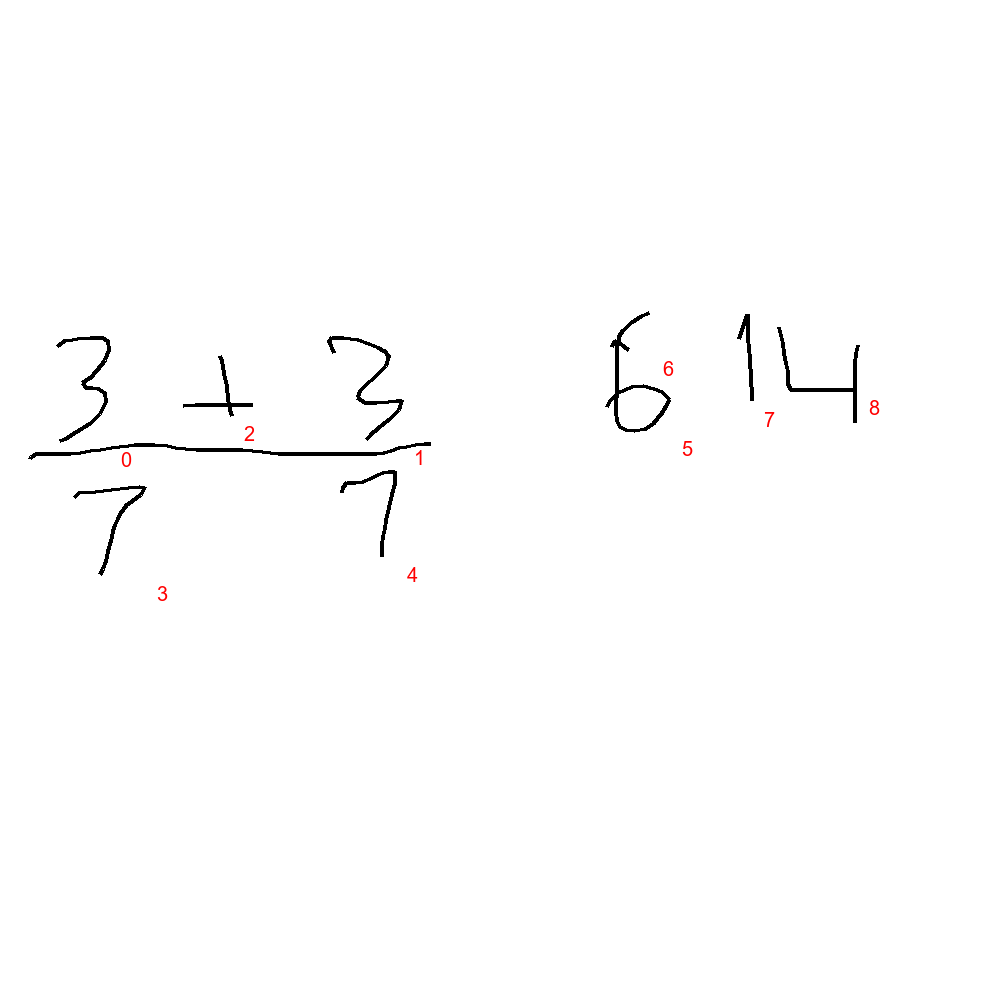 3 + 3
7 7
6 14
0 1 2 3 4 5 6 7 8